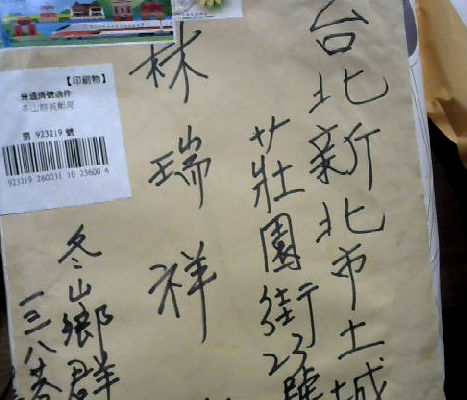 台北新北市土城
莊園街23號
林瑞祥
冬山鄉群
一三八巷
【印刷物】
普通掛號函件
冬山群英郵局
第 923219 號
923219 260031 10 23600 6